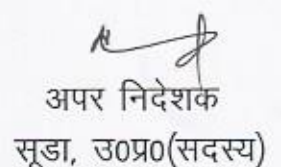 अपर निदेशक
सूडा, उ0प्र0(सदस्य)